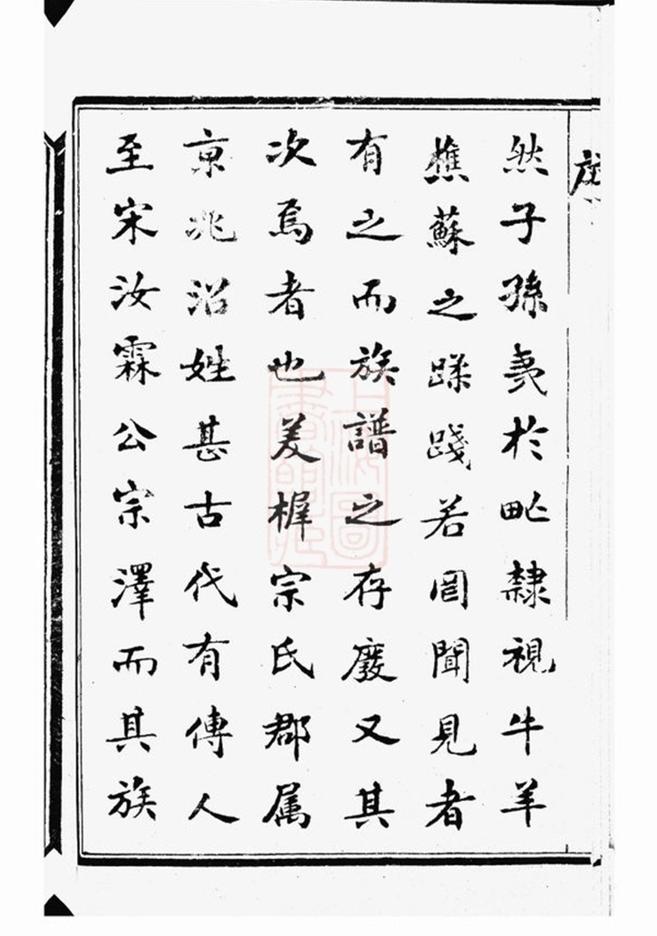 序
然子孫夷於甿隸視牛羊
樵蘇之蹂踐若罔聞見者
有之而族譜之存廢又其
次焉者也美樨宗氏郡属
京兆沿姓甚古代有傳人
至宋汝霖公宗澤而其族